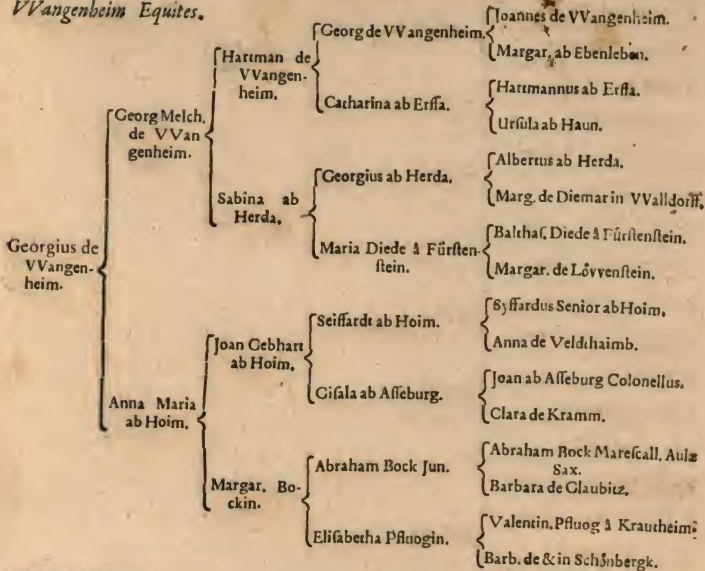 VVangenheim Equites.
Georgius de
VVangen-
heim.
Georg Melch.
de VVan
genheim.
Anna Maria
ab Hoim.
Hartman de
VVangen-
heim.
Sabina ab
Herda.
Joan Gebhart
ab Hoim.
Margar. Bo-
ckin.
Georg de VVangenheim.
Catharina ab Erffa.
Georgius ab Herda.
Maria Diede â Fürsten-
stein.
Seiffardt ab Hoim.
Gisala ab Asseburg.
Abraham Bock Jun.
Elisabetha Pfluogin.
Joannes de VVangenheim.
Margar. ab Ebenleben.
Hartmannus ab Erffa.
Ursula ab Haun.
Albertus ab Herda.
Marg. de Diemar in VValldorff.
Balthas. Diede â Fürstenstein.
Margar. de Lövvenstein.
Syffardus Senior ab Hoim.
Anna de Veldthaimb.
Joan ab Asseburg Colonellus.
Clara de Kramm.
Abraham Bock Marescall. Aulæ
Sax.
Barbara de Glaubitz.
Valentin. Pfluog â Krautheim.
Barb. de & in Schönbergk.